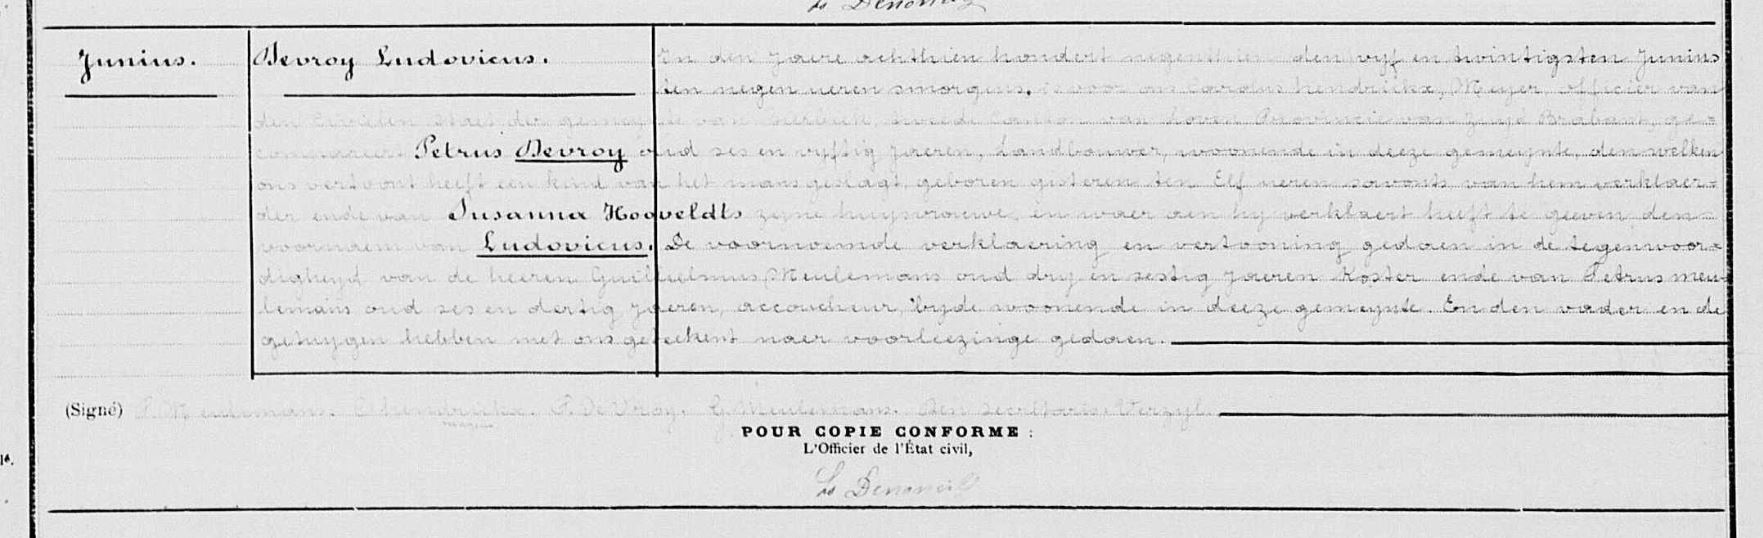 Junius.
Devroy Ludovicus.
In den jaere achthien hondert negenthien den vyf en twintigsten Junius
ten negen ueren smorgens, is voor ons Carolus hendrickx, Meyer, officier van
den Civielen staet der gemeynte van tweede Canton van Loven Provincie van Zuyd Brabant, ge-
compareert Petrus Devroy oud ses en vyftig jaeren, Landbouwer, woonende in deeze gemeynte, den welken
ons vertoont heeft een kind van het mans geslagt, geboren gisteren ten Elf ueren savonts van hem verklaer-
der ende van Susanna Hooveldts zyne huysvrouwe, en waer aen hy verklaert heeft te geeven den
voornaem van Ludovicus. De voornoemde verklaering en vertooning gedaen in de tegenwoor-
digheyd van de heeren Guilhelmus Meulemans oud dry en sestig jaeren Koster ende van Petrus meu-
lemans oud ses en dertig jaeren, accoucheur, byde woonende in deeze gemeynte. En den vader en de
getuygen hebben met ons geteekent naer voorleezinge gedaen.
(Signé) P. Meulemans. C. hendrickx. P. De Vroy. G. Meulemans. Den secretaris Verzyl.
POUR COPIE CONFORME :
L'Officier de l'État civil,